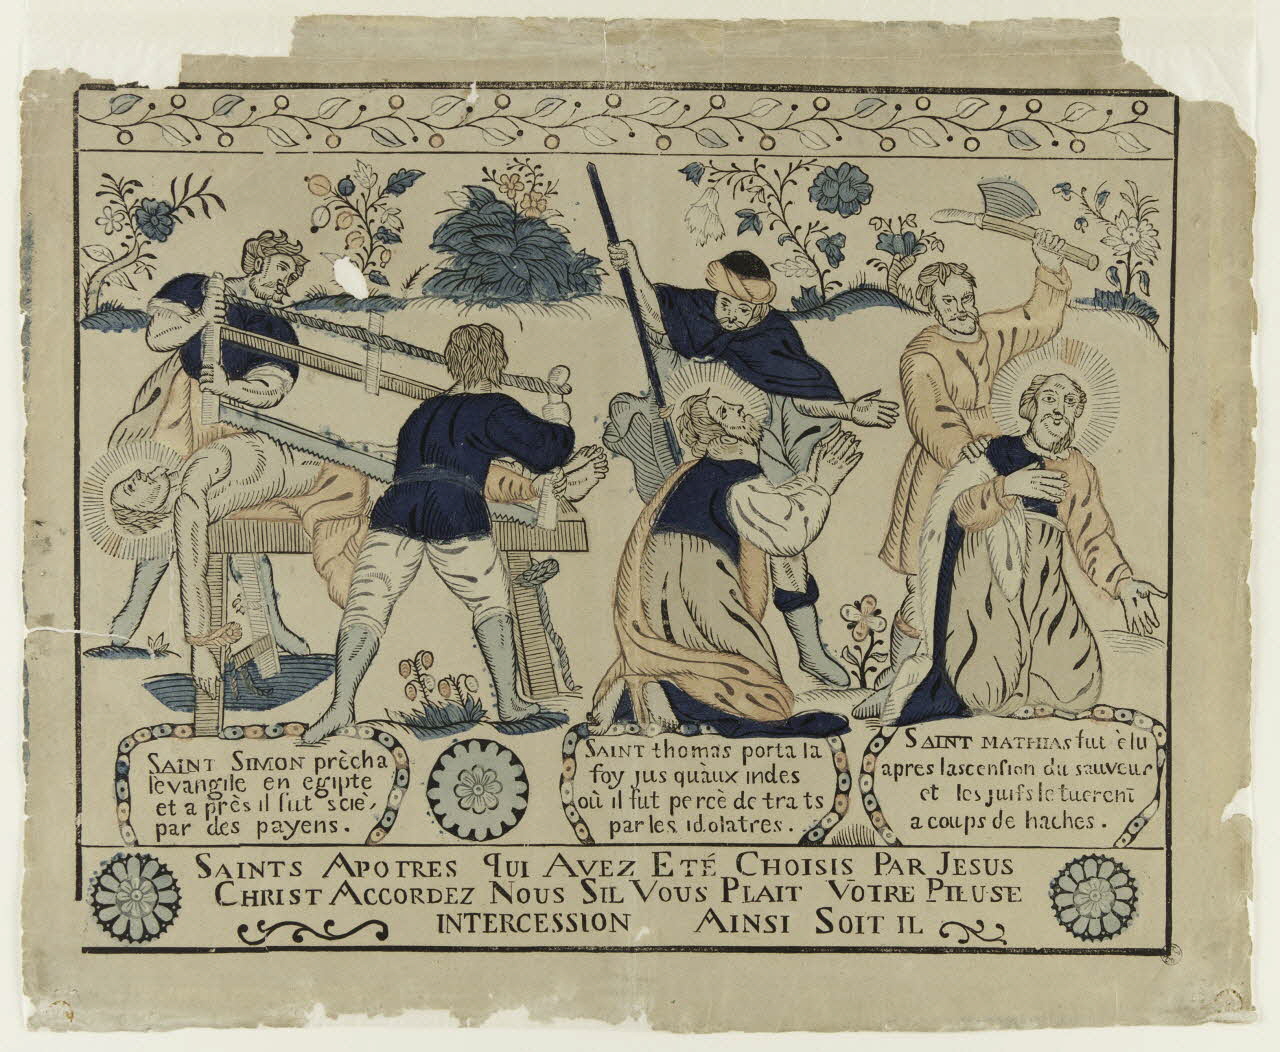 SAINT SIMON prècha
levangile en egipte
et a près il fut scié,
par des payens.
SAINT thomas porta la
foy jus quàux indes
où il fut percè de traits
par les idolatres.
SAINT MATHIAS fut èlu
apres lascension du sauveur
et les juifs le tuerent
a coups de haches.
SAINTS APOTRES QUI AVEZ ETÉ CHOISIS PAR JESUS
CHRIST ACCORDEZ NOUS SIL VOUS PLAIT VOTRE PIEUSE
INTERCESSION AINSI SOIT IL